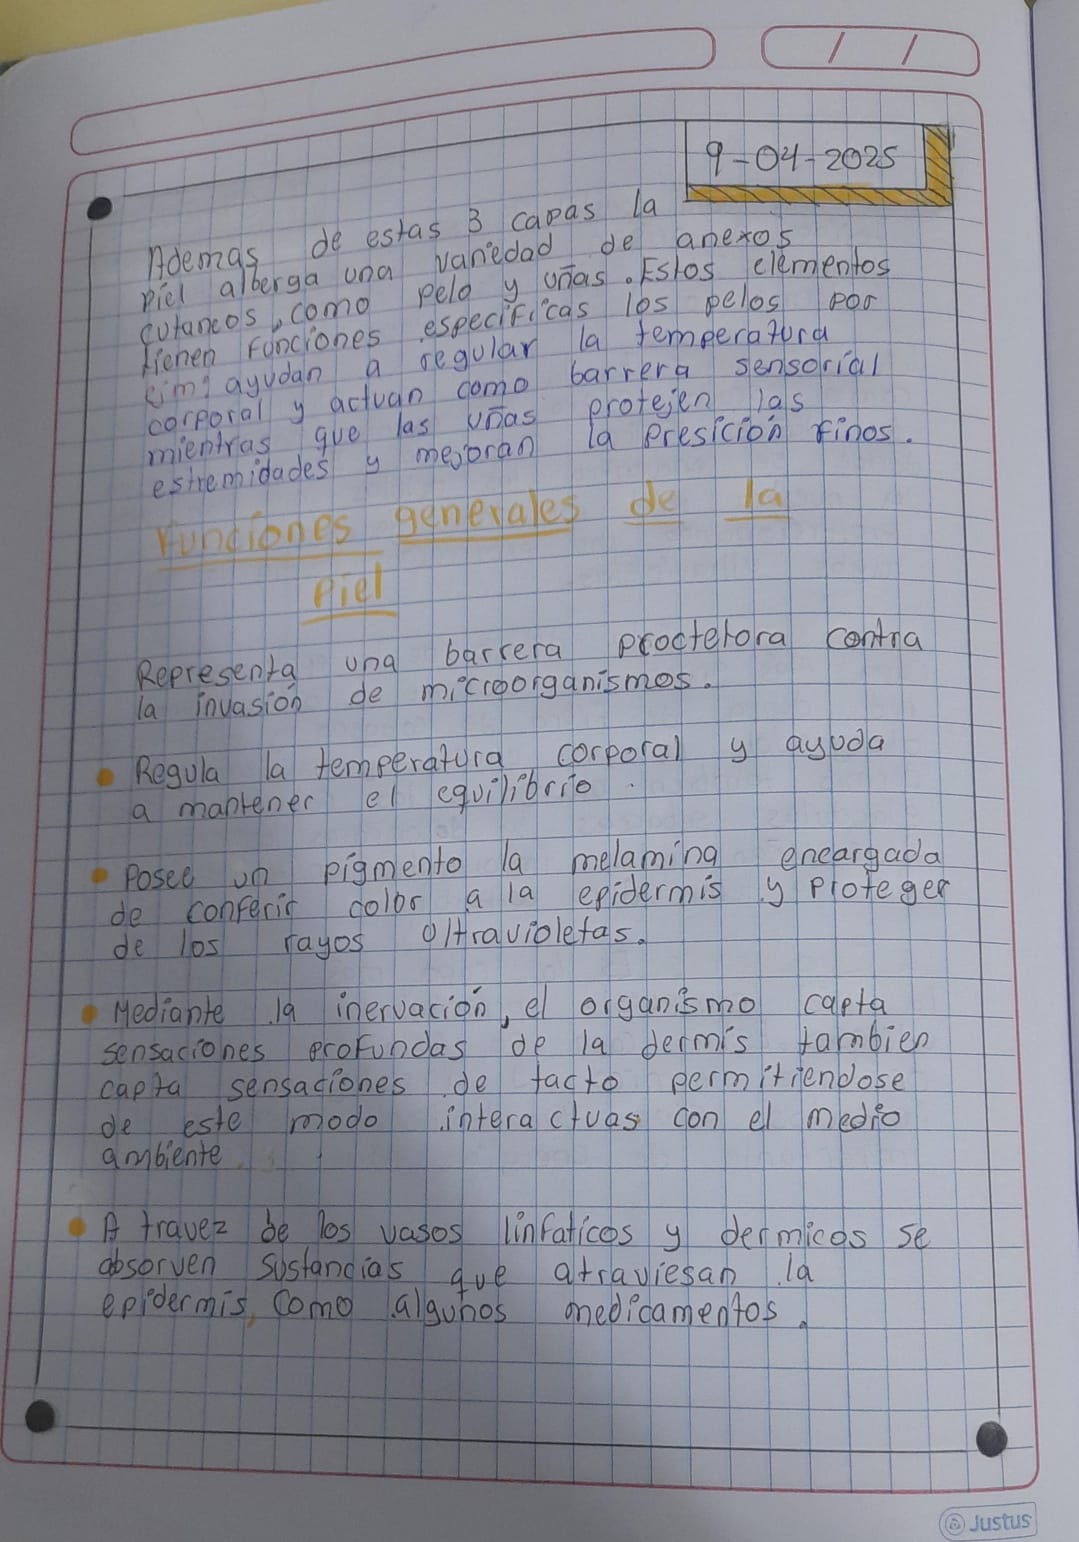 / /
9-04-2025
Ademas de estas 3 capas la
piel alberga una variedad de anexos
cutaneos, como pelo y uñas. Estos elementos
tienen funciones especificas los pelos por
ayudan a regular la temperatura
corporal y actuan como barrera sensorial
mientras que las uñas protejen las
estremidades y mejoran la presición finos.
Funciones generales de la
Piel
Representa una barrera proctetora contra
la invasión de microorganismos.
• Regula la temperatura corporal y ayuda
a mantener el equilibrio.
• Posee un pigmento la melamina encargada
de conferir color a la epidermis y proteger
de los rayos Ultravioletas.
• Mediante la inervación, el organismo capta
sensaciones profundas de la dermis tambien
capta sensaciones de tacto permitiendose
de este modo interactuas con el medio
ambiente
• A travez de los vasos linfaticos y dermicos se
absorven sustancias que atraviesan la
epidermis, como algunos medicamentos.
Justus